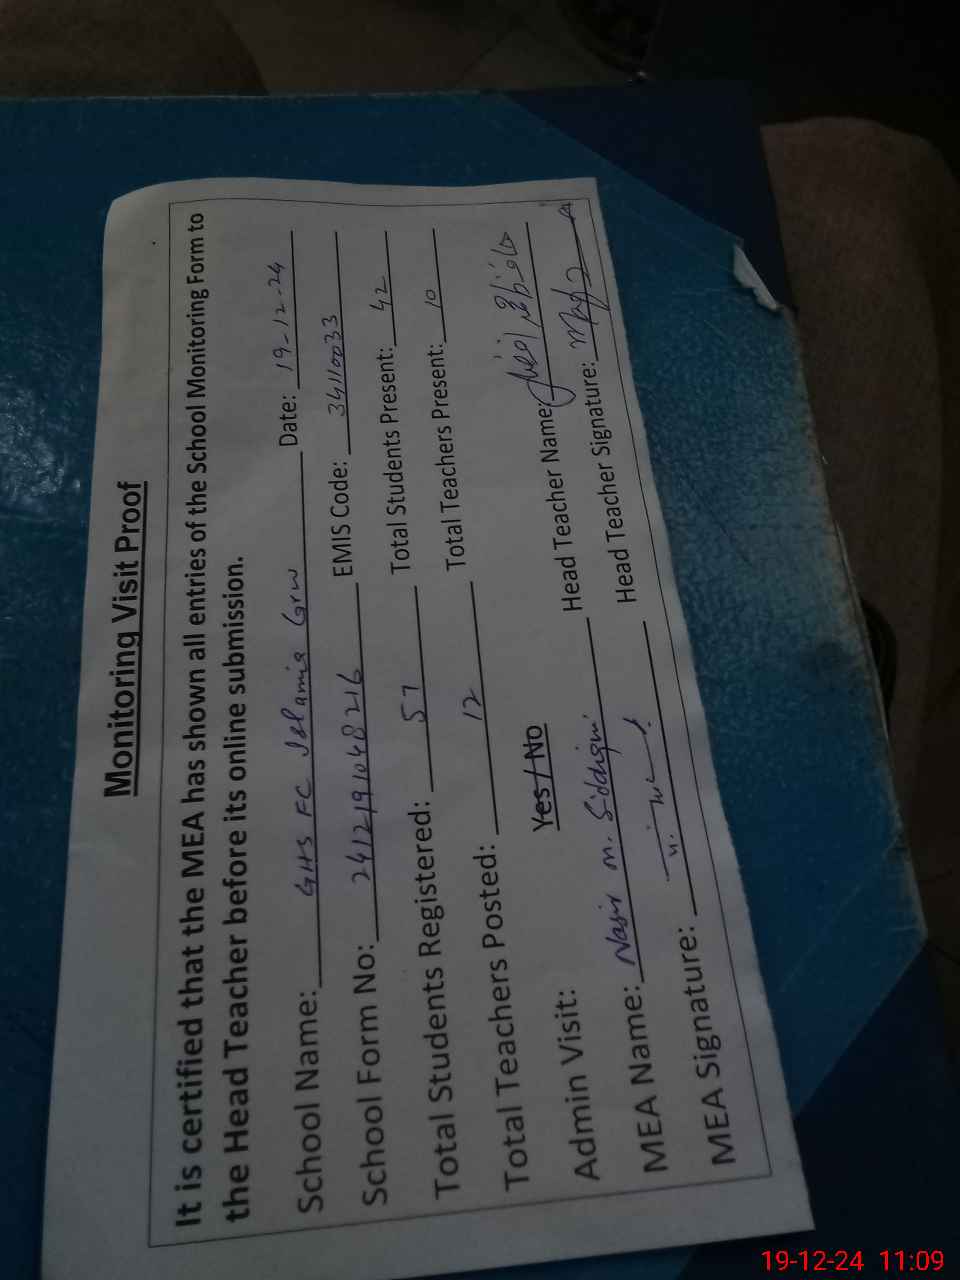 Monitoring Visit Proof
It is certified that the MEA has shown all entries of the School Monitoring Form to
the Head Teacher before its online submission.
School Name: GHS FC Islamia Grw Date: 19-12-24
School Form No: 241219104 8216 EMIS Code: 34110033
Total Students Registered: 57 Total Students Present: 42
Total Teachers Posted: 12 Total Teachers Present: 10
Admin Visit: Yes / No
MEA Name: Nasir M. Siddiqui Head Teacher Name:
MEA Signature: Head Teacher Signature:
19-12-24 11:09